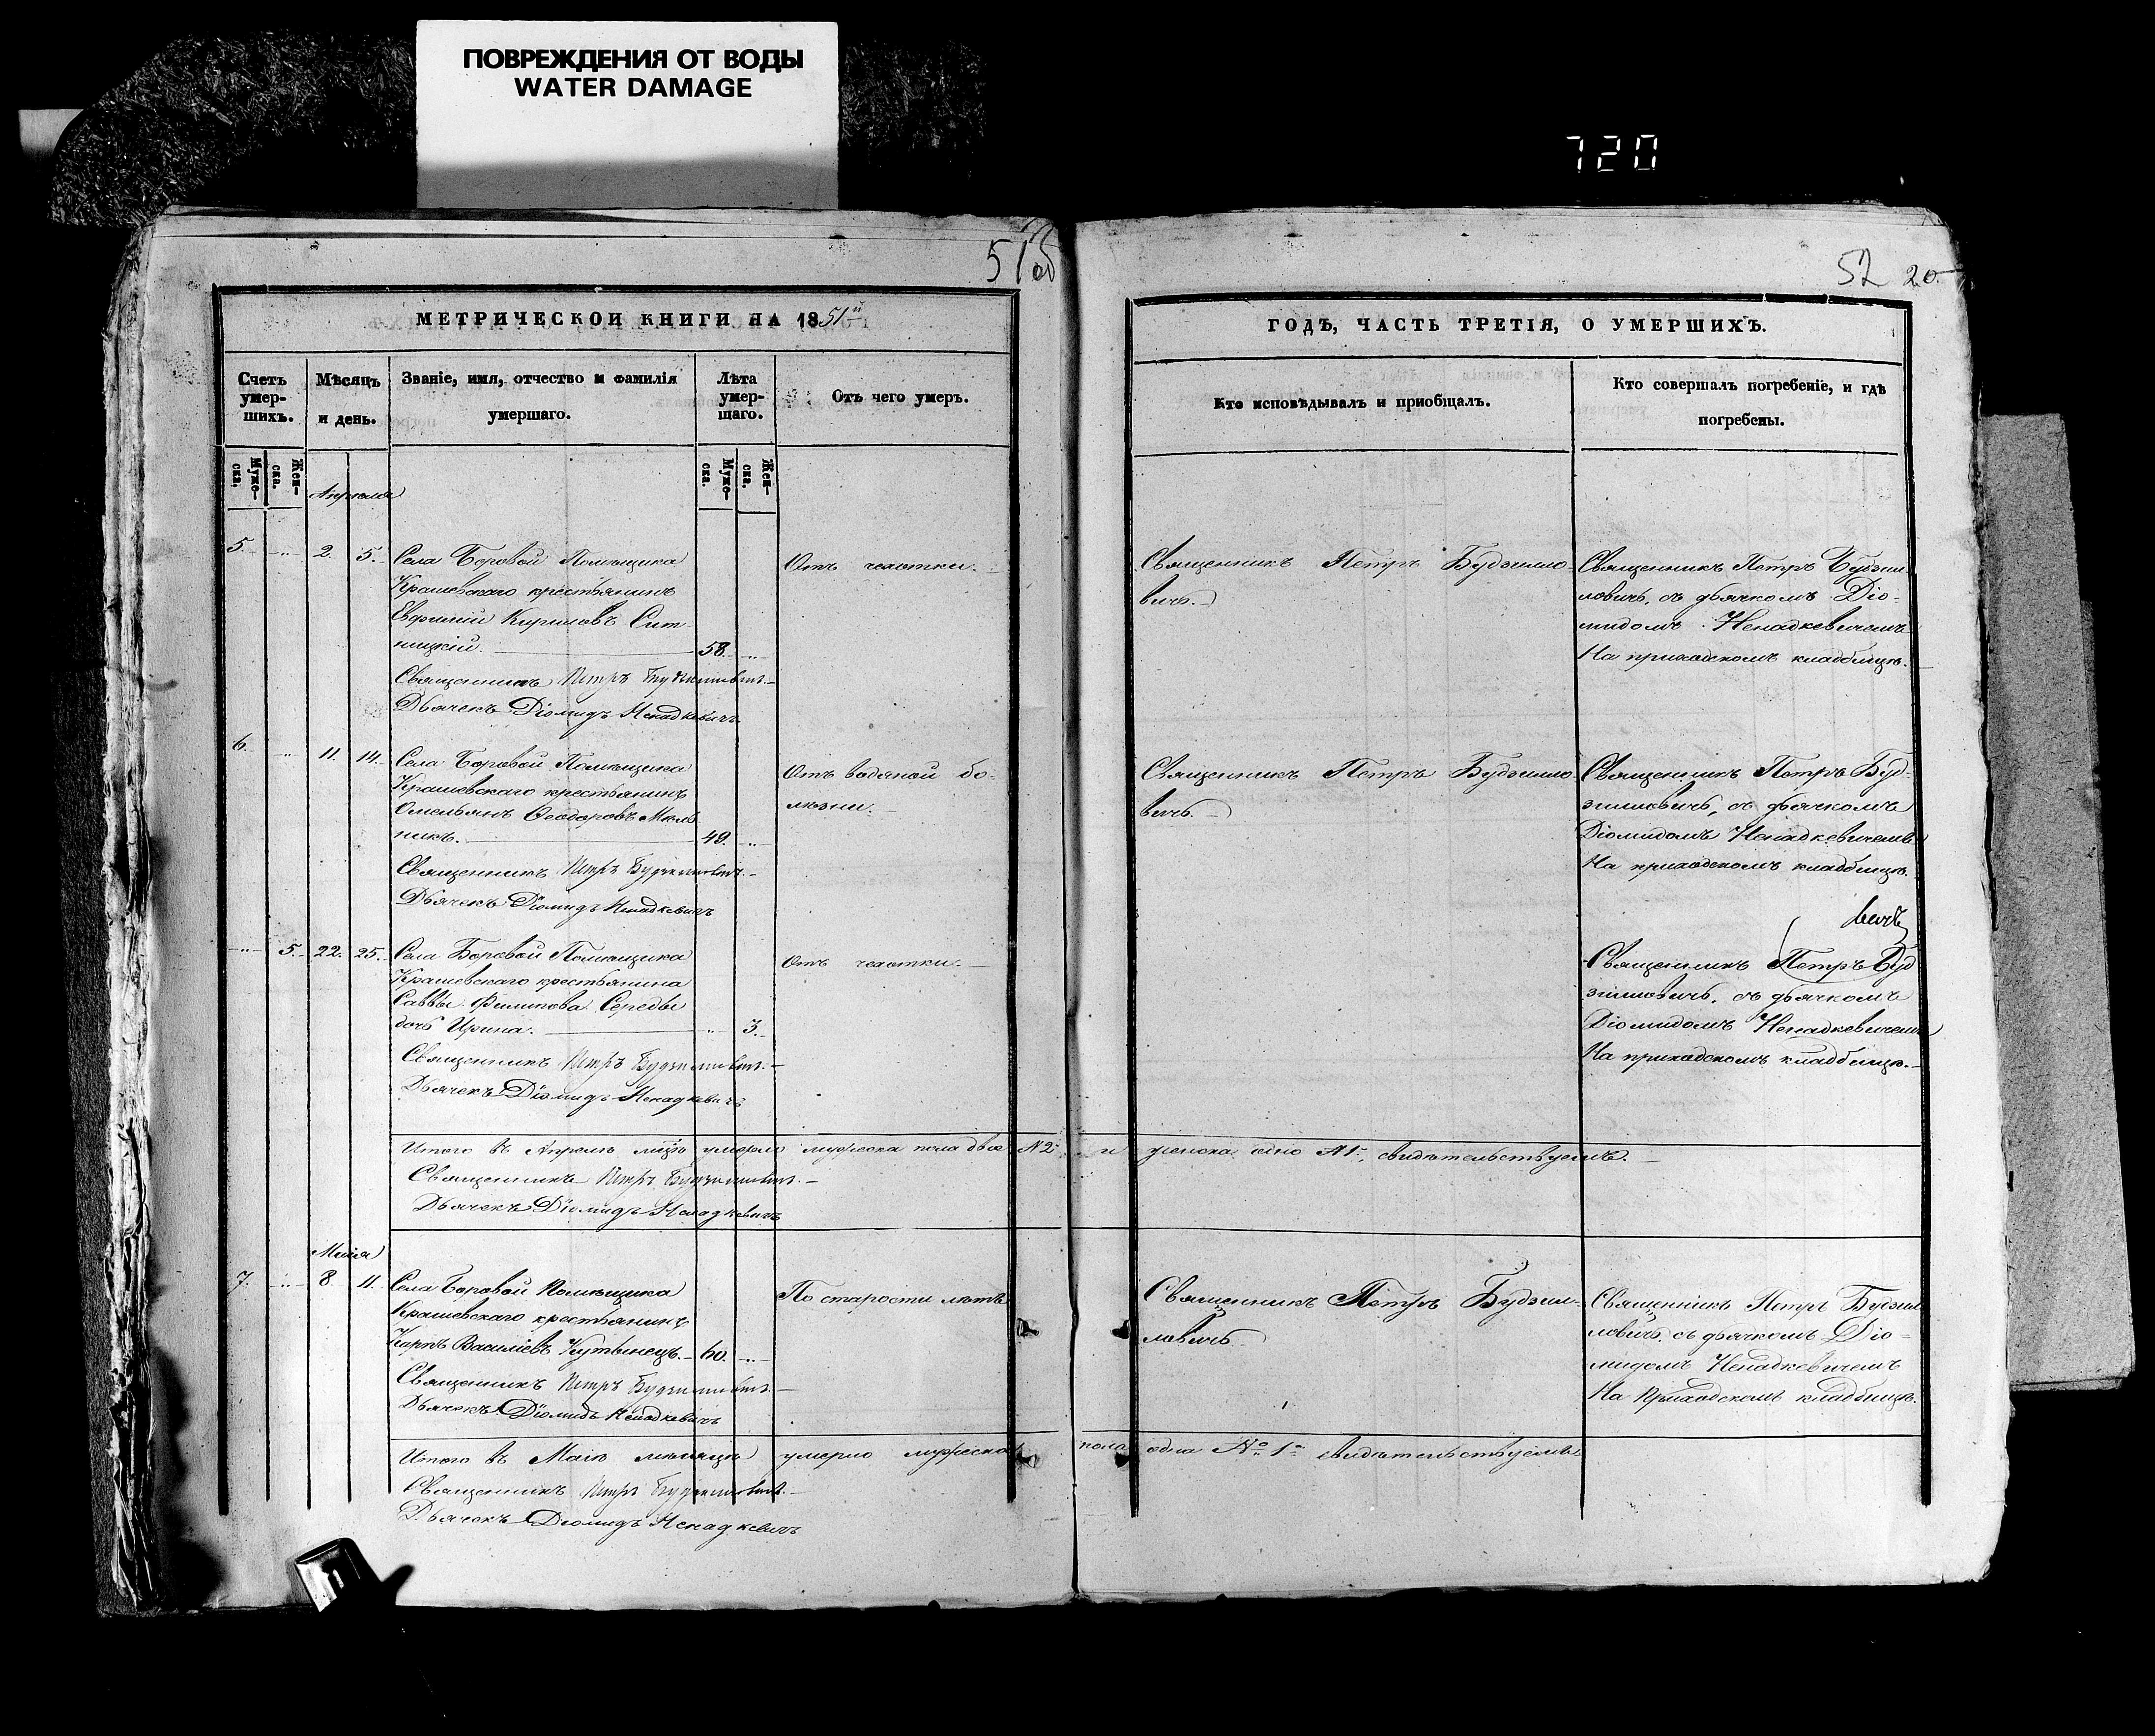 ПОВРЕЖДЕНИЯ ОТ ВОДЫ
WATER DAMAGE
720
51 об
52 20.
МЕТРИЧЕСКОИ КНИГИ НА 1851й
ГОДЪ, ЧАСТЬ ТРЕТІЯ, О УМЕРШИХЪ.
Счетъ умер-шихъ.
Мѣсяцъ и день.
Званіе, имя, отчество и фамилія умершаго.
Лѣта умер-шаго.
Отъ чего умеръ.
Кто исповѣдывалъ и приобщалъ.
Кто совершалъ погребеніе, и гдѣ погребены.
Муже-ска.
Жен-ска.
Муже-ска.
Жен-ска.
Апреля
5. 2. 5.
Села Боровой Помѣщика
Крашевскаго крестьянинъ
Евфимій Кириловъ Сит
ницкій. 58.
Священникъ Петръ Будзиловичъ.
Дьячекъ Діомидъ Ненадкевичъ
Отъ чахотки.
Священникъ Петръ Будзилло-
вичъ.
Священникъ Петръ Будзил-
ловичъ, съ дьячкомъ Діо-
мидомъ Ненадкевичемъ
На приходскомъ кладбищѣ.
6. 11. 14.
Села Боровой Помѣщика
Крашевскаго крестьянинъ
Омельянъ Феодоровъ Мель
никъ. 49.
Священникъ Петръ Будзиловичъ.
Дьячекъ Діомидъ Ненадкевичъ
Отъ водяной бо-
лѣзни.
Священникъ Петръ Будзилло-
вичъ.
Священникъ Петръ Буд-
зилловичъ, съ дьячкомъ
Діомидомъ Ненадкевичемъ
На приходскомъ кладбищѣ.
5. 22. 25.
Села Боровой Помѣщика
Крашевскаго крестьянина
Саввы Филипова Середы
дочь Ирина. 3.
Священникъ Петръ Будзиловичъ.
Дьячекъ Діомидъ Ненадкевичъ
Отъ чахотки.
вичъ
Священникъ Петръ Буд
зилловичъ, съ дьячкомъ
Діомидомъ Ненадкевичемъ
На приходскомъ кладбищѣ.
Итого въ Апрелѣ мцѣ умерло мужеска пола двое №2 и женска одно №1, свидѣтельствуемъ.
Священникъ Петръ Будзиловичъ.
Дьячекъ Діомидъ Ненадкевичъ
Маія
7. 8. 11.
Села Боровой Помѣщика
Крашевскаго крестьянинъ
Карпъ Василіевъ Кутынецъ. 60.
Священникъ Петръ Будзиловичъ.
Дьячекъ Діомидъ Ненадкевичъ
По старости лѣтъ
Священникъ Петръ Будзил-
ловичъ
Священникъ Петръ Будзил
ловичъ съ дьячкомъ Діо-
мидомъ Ненадкевичемъ
На Приходскомъ кладбищѣ.
Итого въ Маіѣ мѣсяцѣ умерло мужеска пола одна № 1 свидѣтельствуемъ
Священникъ Петръ Будзиловичъ.
Дьячекъ Діомидъ Ненадкевичъ